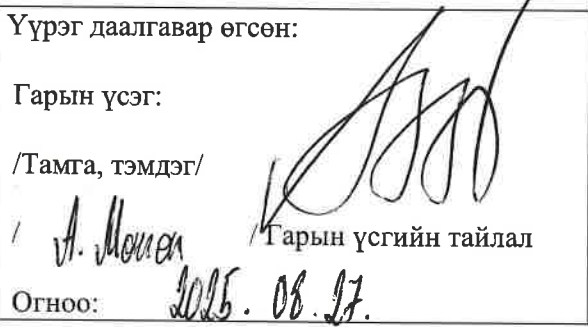 Үүрэг даалгавар өгсөн:
Гарын үсэг:
/Тамга, тэмдэг/
/ А. /Гарын үсгийн тайлал
Огноо: 2025. 08. 27.